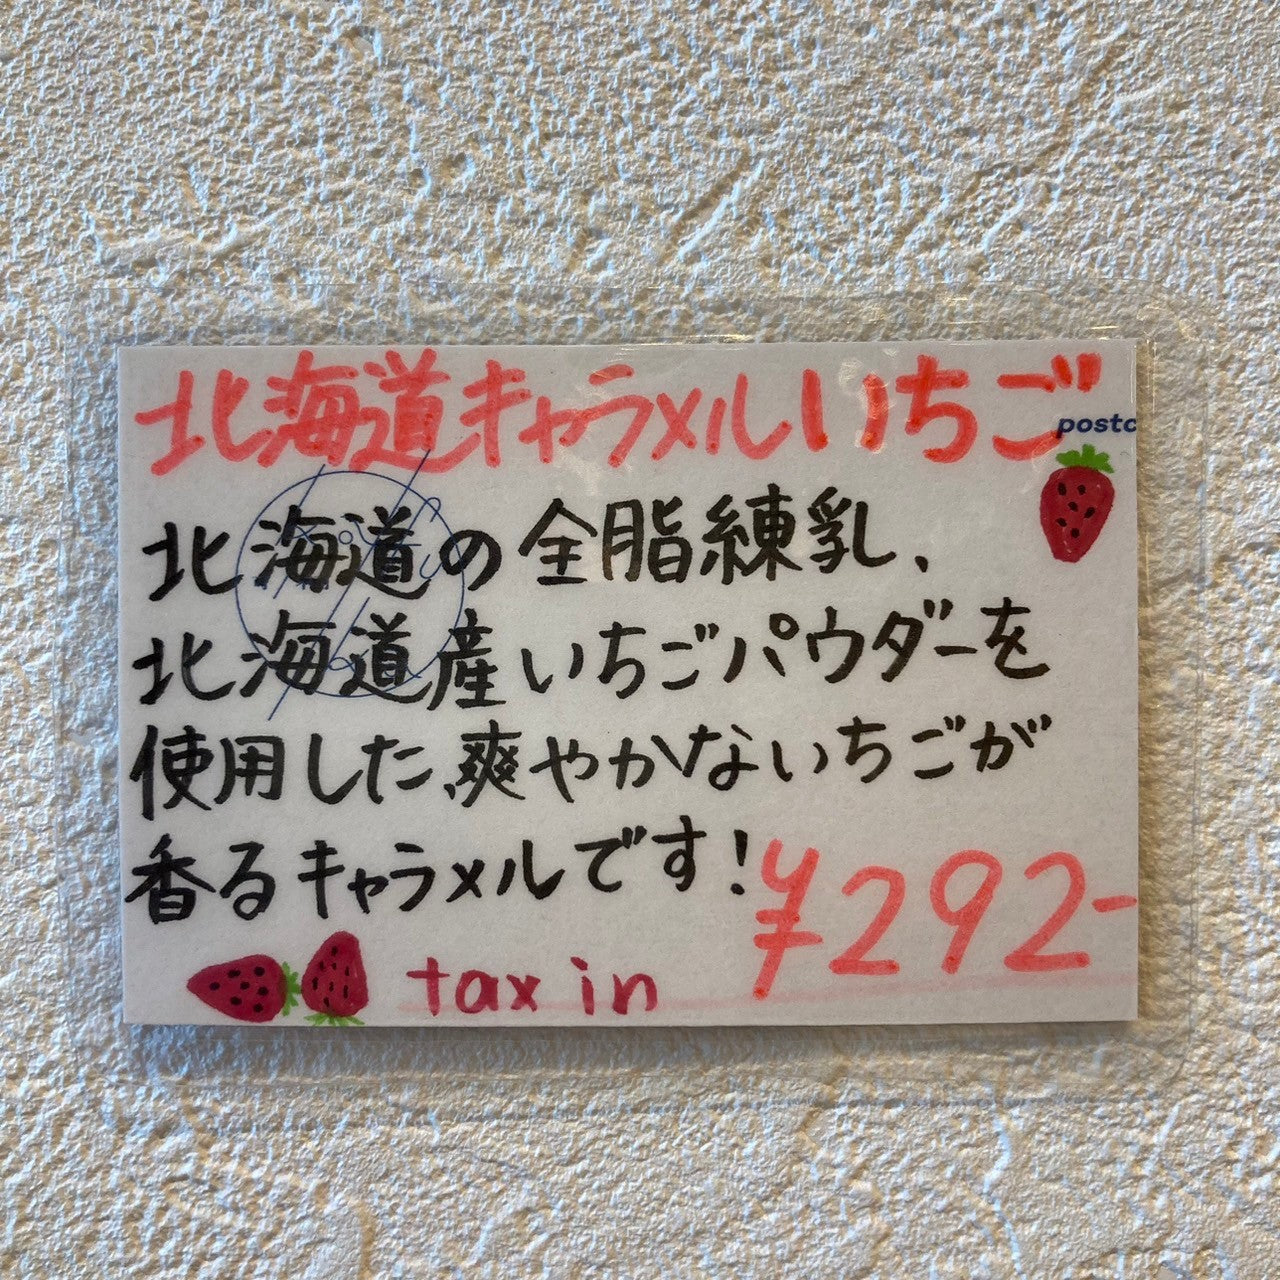 北海道キャラメルいちご
postc
北海道の全脂練乳、
北海道産いちごパウダーを
使用した、爽やかないちごが
香るキャラメルです!
¥292-
tax in